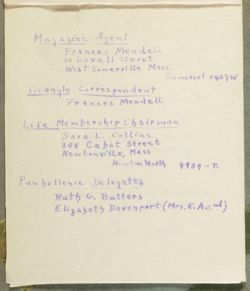 Magazine Agent
Frances Mendell
10 Lovell Street
West Somerville Mass.
Somerset
Triangle Correspondent
Frances Mendell
Life Membership Chairman
Sara L. Collins
Cabot Street
Newtonville, Mass
Newton North 4939-R.
Panhellenic Delegates
Ruth G. Butters
Elizabeth Davenport (Mrs. E.